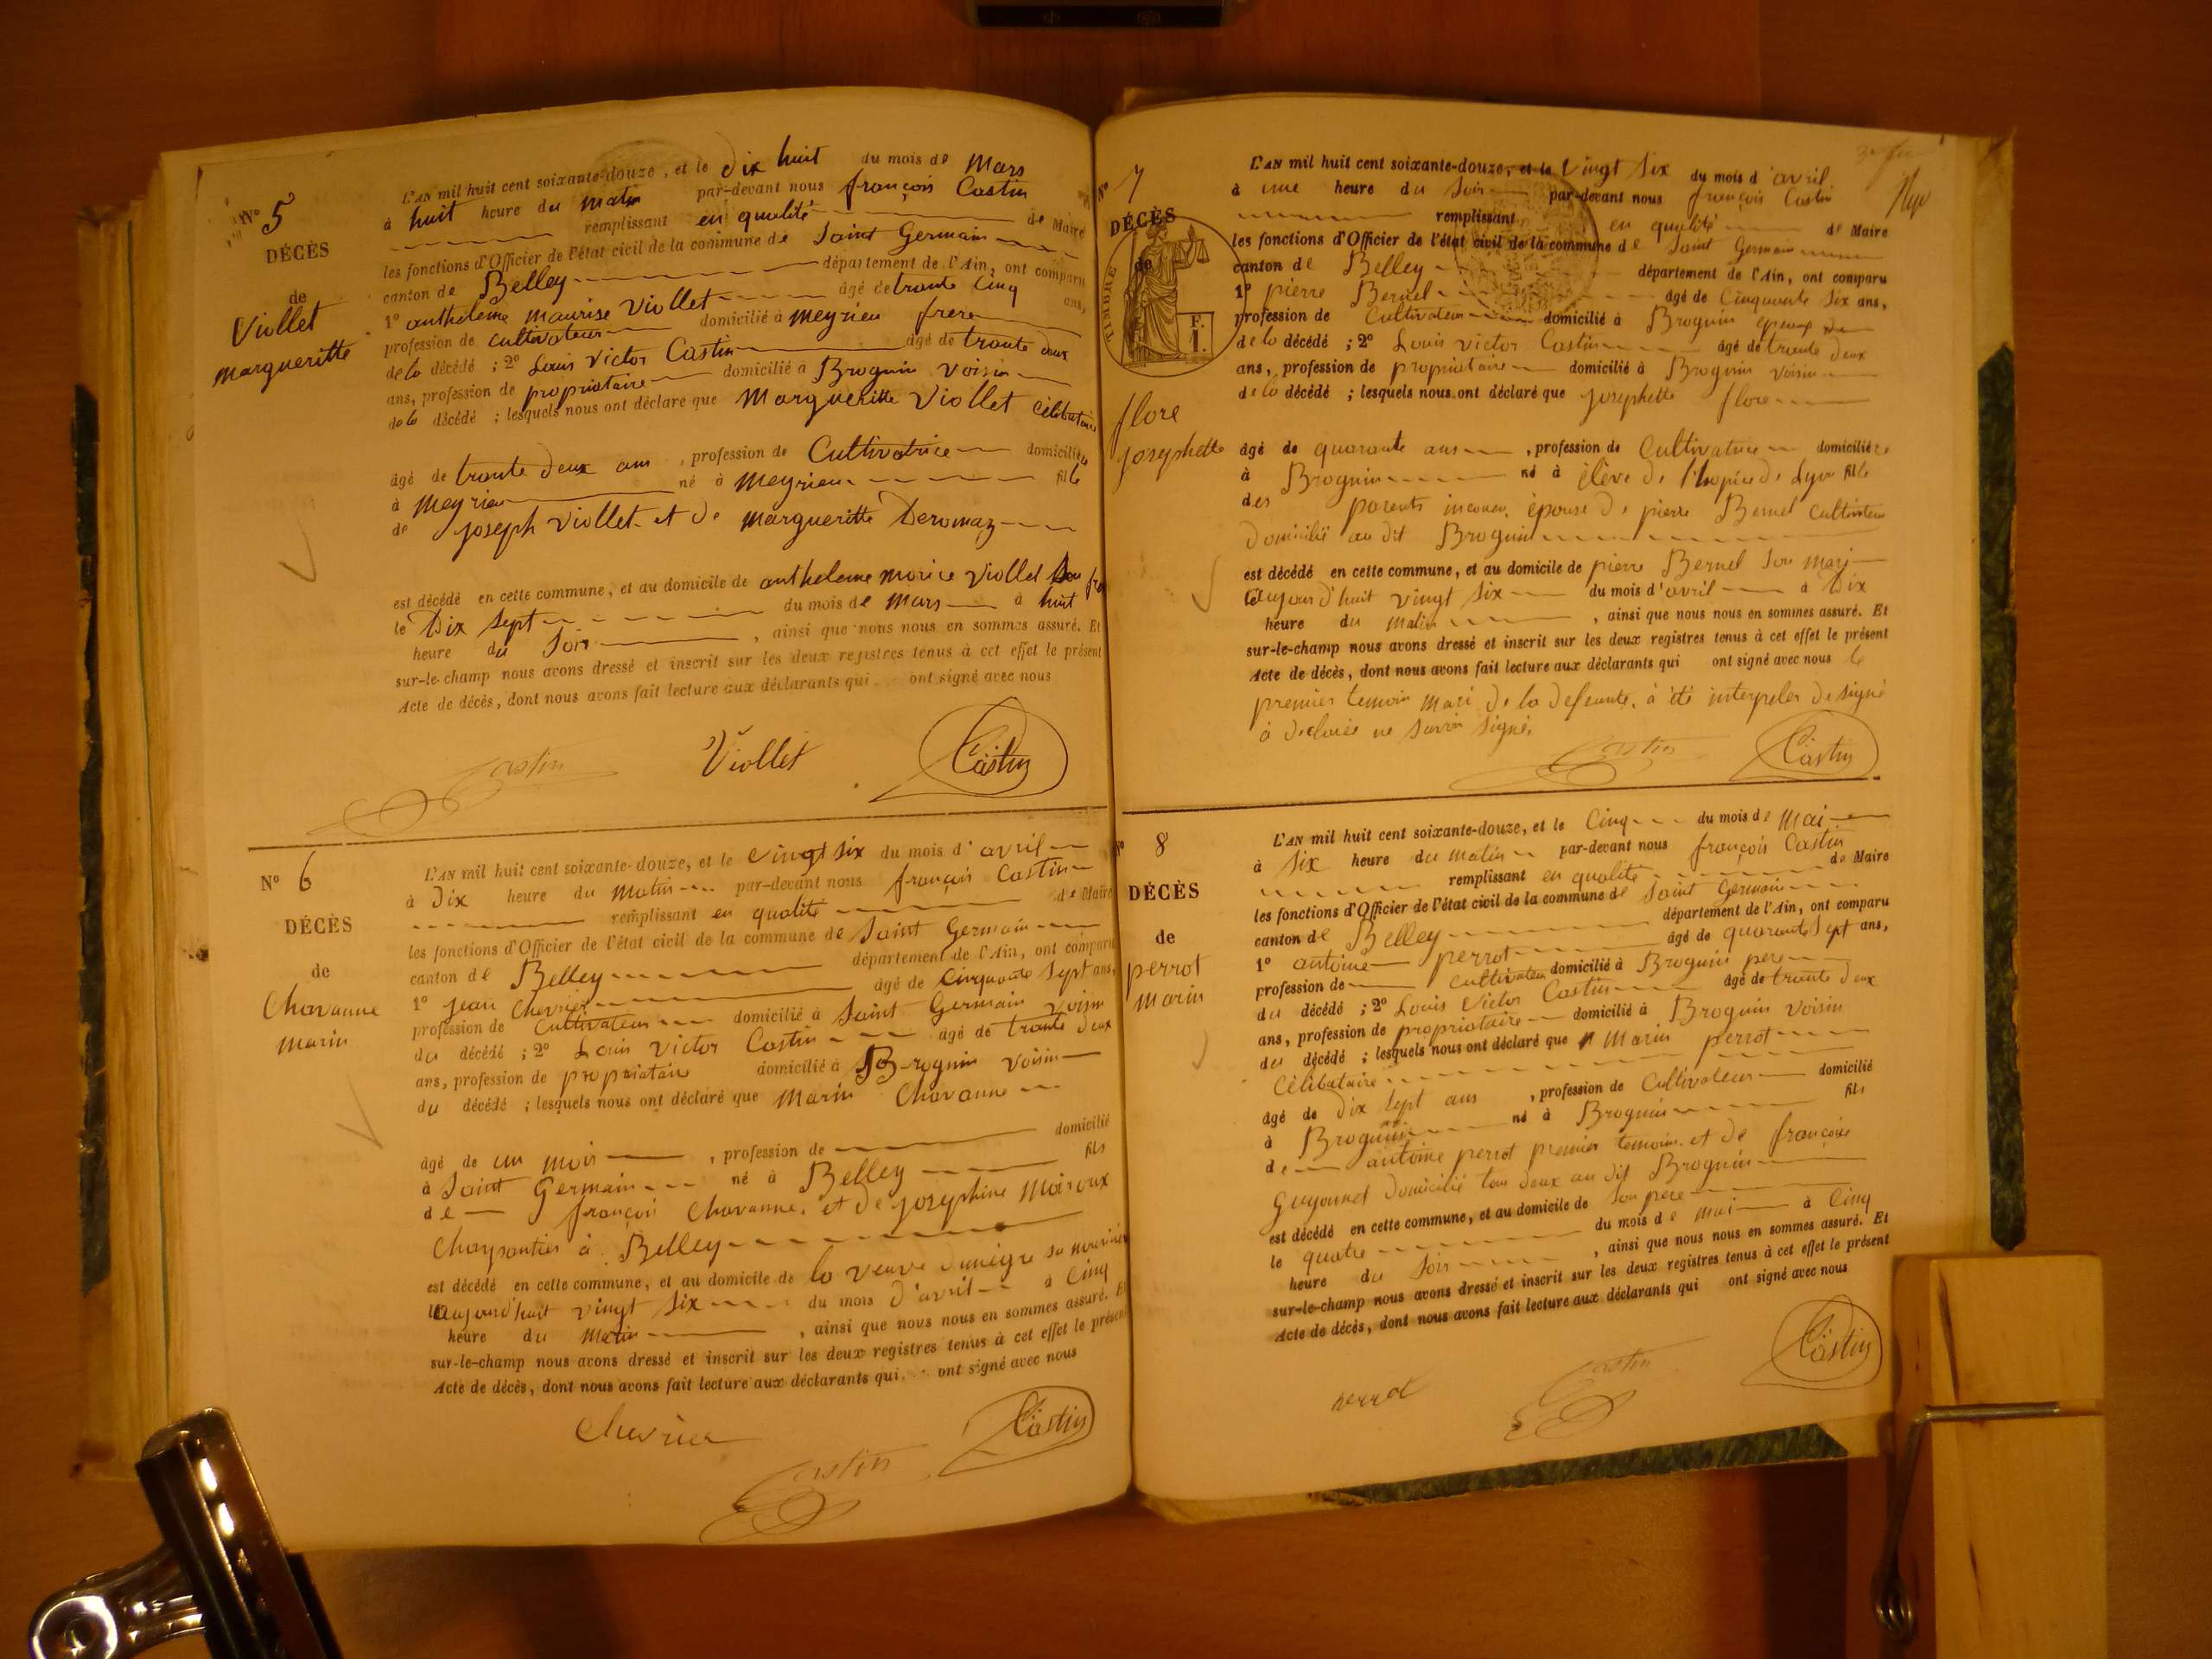 N° 5
DÉCÈS
de
Viollet
margueritte
L'AN mil huit cent soixante-douze, et le Dix huit du mois de Mars
à huit heure du matin par-devant nous françois Castin
remplissant en qualité de Maire
les fonctions d'Officier de l'état civil de la commune de Saint Germain
canton de Belley département de l'Ain, ont comparu
1° anthelème maurise Viollet âgé de trante cinq ans,
profession de cultivateur domicilié à meyrieu frere
de la décédé ; 2° Louis Victor Castin âgé de trante deux
ans, profession de propriataire domicilié à Brognin voisin
de la décédé ; lesquels nous ont déclaré que Margueritte Viollet Célibataire
âgé de trante deux ans, profession de Cultivatrice domiciliée
à meyrieu né à meyrieu fille
de joseph Viollet et de margueritte Deromaz
est décédé en cette commune, et au domicile de antheleme morice Viollet son frere
le Dix sept du mois de mars à huit
heure du soir, ainsi que nous nous en sommes assuré. Et
sur-le-champ nous avons dressé et inscrit sur les deux registres tenus à cet effet le présent
Acte de décès, dont nous avons fait lecture aux déclarants qui ont signé avec nous
Castin Viollet Castin
N° 6
DÉCÈS
de
Chavanne
marin
L'AN mil huit cent soixante-douze, et le vingt six du mois d'avril
à Dix heure du matin par-devant nous françois Castin
remplissant en qualité de Maire
les fonctions d'Officier de l'état civil de la commune de Saint Germain
canton de Belley département de l'Ain, ont comparu
1° jean Chevrier âgé de cinquante sept ans,
profession de Cultivateur domicilié à Saint Germain voisin
du décédé ; 2° Louis Victor Castin âgé de trante deux
ans, profession de propriataire domicilié à Brognin voisin
du décédé ; lesquels nous ont déclaré que Marin Chavanne
âgé de un mois, profession de domicilié
à Saint Germain né à Belley fils
de françois Chavanne, et de josephine Moiroux
Charpantier à Belley
est décédé en cette commune, et au domicile de la veuve
aujourd'huit vingt six du mois d'avril à cinq
heure du matin, ainsi que nous nous en sommes assuré. Et
sur-le-champ nous avons dressé et inscrit sur les deux registres tenus à cet effet le présent
Acte de décès, dont nous avons fait lecture aux déclarants qui ont signé avec nous
Chevrier Castin Castin
N° 7
DÉCÈS
de
TIMBRE
F.
1.
flore
josephette
L'AN mil huit cent soixante-douze, et le vingt six du mois d'avril
à une heure du soir par-devant nous françois Castin
remplissant en qualité de Maire
les fonctions d'Officier de l'état civil de la commune de Saint Germain
canton de Belley département de l'Ain, ont comparu
1° pierre Bernel âgé de Cinquante six ans,
profession de Cultivateur domicilié à Brognin epoux
de la décédé ; 2° Louis victor Castin âgé de trante deux
ans, profession de propriataire domicilié à Brognin voisin
de la décédé ; lesquels nous ont déclaré que josephette flore
âgé de quarante ans, profession de Cultivatrice domiciliée
à Brognin né à élève de l'hopice de Lyon fille
des parents inconu, épouse de pierre Bernel cultivateur
domicilié au dit Brognin
est décédé en cette commune, et au domicile de pierre Bernel son mari
aujourd'huit vingt six du mois d'avril à Dix
heure du matin, ainsi que nous nous en sommes assuré. Et
sur-le-champ nous avons dressé et inscrit sur les deux registres tenus à cet effet le présent
Acte de décès, dont nous avons fait lecture aux déclarants qui ont signé avec nous le
premier temoin mari de la defeunte, à été interpeler de signé
à declaré ne savoir signé.
Castin Castin
N° 8
DÉCÈS
de
perrot
marin
L'AN mil huit cent soixante-douze, et le Cinq du mois de Mai
à six heure du matin par-devant nous françois Castin
remplissant en qualité de Maire
les fonctions d'Officier de l'état civil de la commune de Saint Germain
canton de Belley département de l'Ain, ont comparu
1° antoine perrot âgé de quarante sept ans,
profession de cultivateur domicilié à Brognin pere
du décédé ; 2° Louis Victor Castin âgé de trante deux
ans, profession de propriataire domicilié à Brognin voisin
du décédé ; lesquels nous ont déclaré que Marin perrot
Célibataire
âgé de dix sept ans, profession de Cultivateur domicilié
à Brognin né à Brognin fils
de antoine perrot premier temoin et de françoise
Guyonnet domicilié tou deux au dit Brognin
est décédé en cette commune, et au domicile de son pere
le quatre du mois de mai à Cinq
heure du soir, ainsi que nous nous en sommes assuré. Et
sur-le-champ nous avons dressé et inscrit sur les deux registres tenus à cet effet le présent
Acte de décès, dont nous avons fait lecture aux déclarants qui ont signé avec nous
perrot Castin Castin